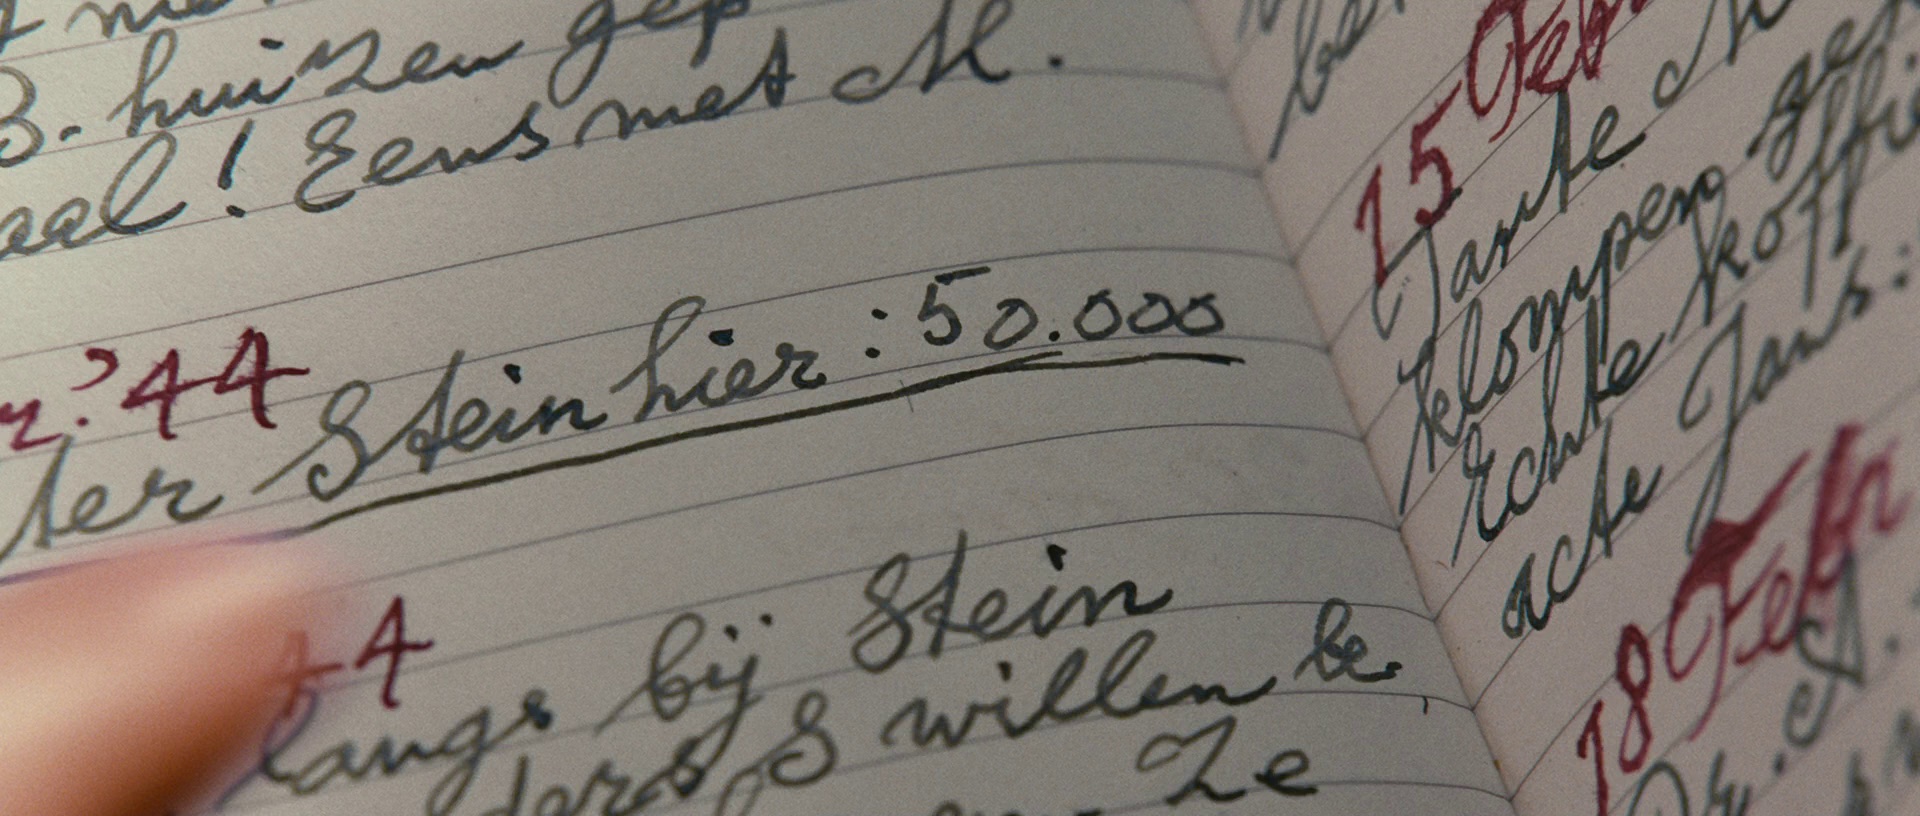 B. huizen gep
aal! Eens met M.
r. '44
ter Stein hier: 50.000
44
langs bij Stein
ders S willen be.
Ze
15 Febr
Tante
klompen
Echte koffie
acte Jans:
18 Febr
Dr. A.